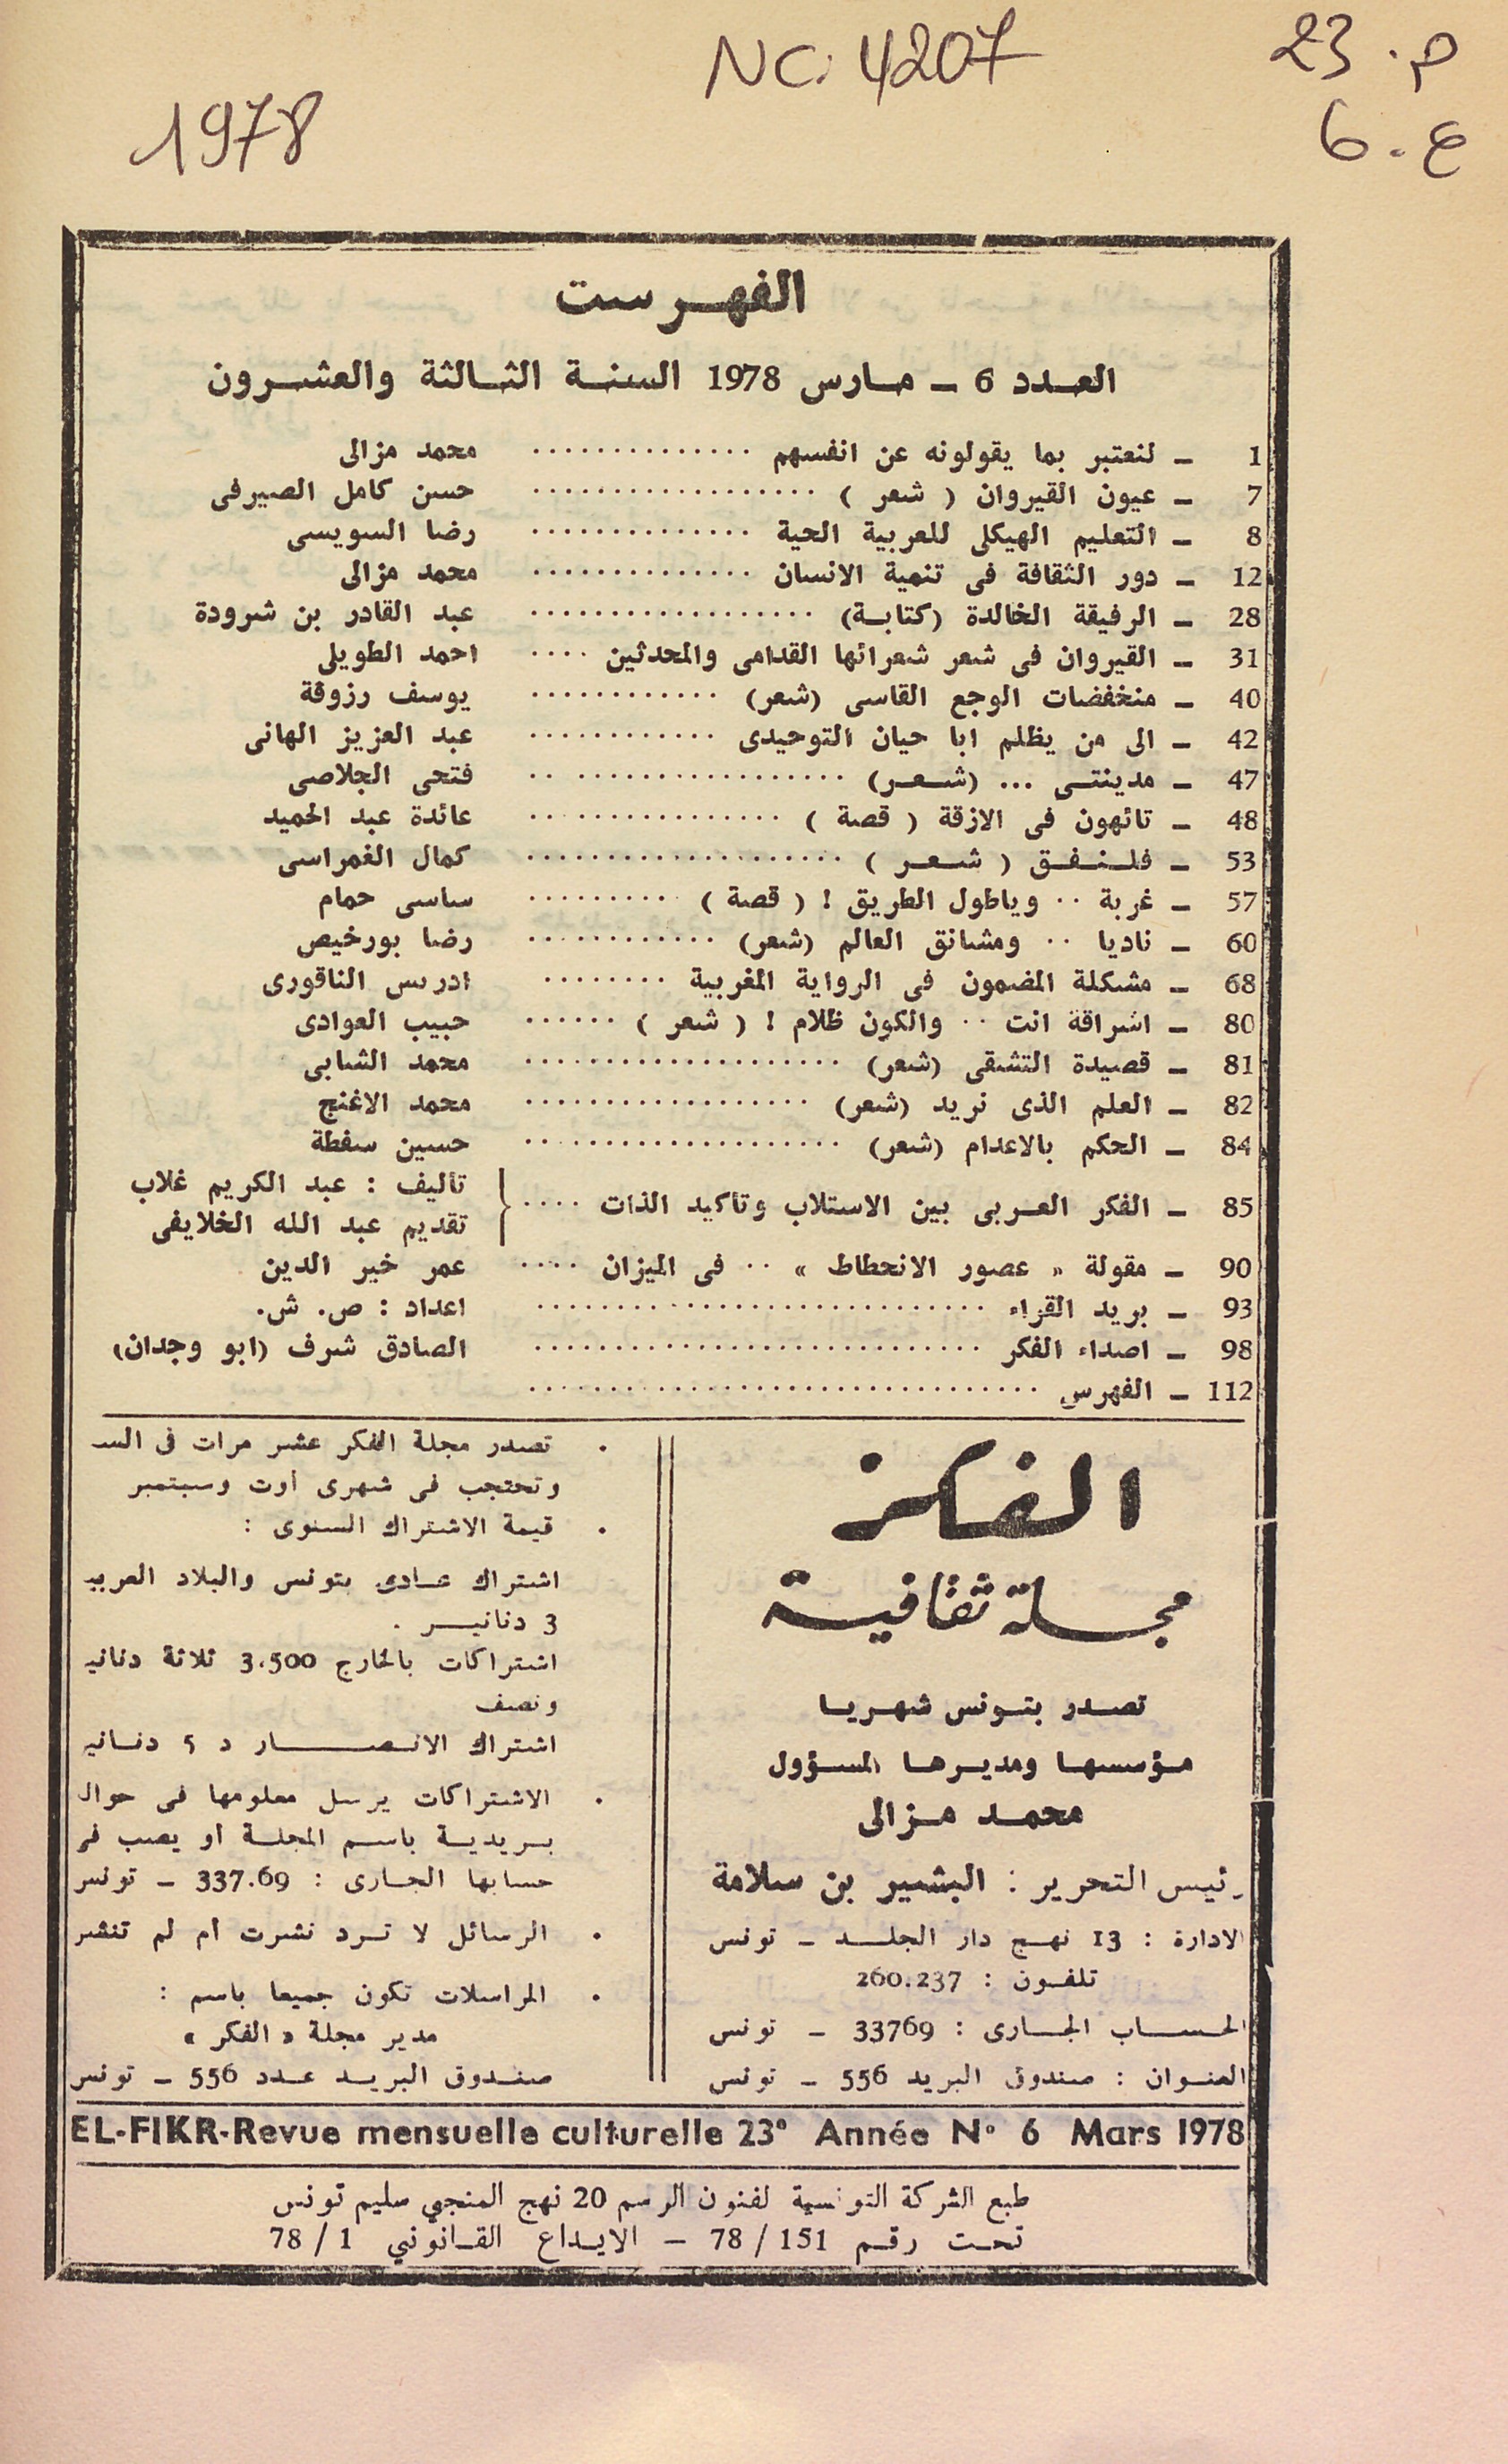 NC. 4207
م. 23
ع. 6
1978
الفهرست
العدد 6 ـ مارس 1978 السنة الثالثة والعشرون
1 ـ لنعتبر بما يقولونه عن انفسهم .............. محمد مزالى
7 ـ عيون القيروان ( شعر ) .................. حسن كامل الصيرفى
8 ـ التعليم الهيكلى للعربية الحية .............. رضا السويسى
12 ـ دور الثقافة فى تنمية الانسان .............. محمد مزالى
28 ـ الرفيقة الخالدة (كتابة) .................. عبد القادر بن شرودة
31 ـ القيروان فى شعر شعرائها القدامى والمحدثين .... احمد الطويلى
40 ـ منخفضات الوجع القاسى (شعر) ............ يوسف رزوقة
42 ـ الى من يظلم ابا حيان التوحيدى ............ عبد العزيز الهانى
47 ـ مدينتى ... (شعر) ................... فتحى الجلاصى
48 ـ تائهون فى الازقة ( قصة ) ................ عائدة عبد الحميد
53 ـ فلنفق ( شعر ) .................... كمال الغمراسى
57 ـ غربة .. وياطول الطريق ! ( قصة ) .......... ساسى حمام
60 ـ ناديا .. ومشانق العالم (شعر) ............ رضا بورخيص
68 ـ مشكلة المضمون فى الرواية المغربية ........ ادريس الناقورى
80 ـ اشراقة انت .. والكون ظلام ! ( شعر ) ...... حبيب العوادى
81 ـ قصيدة التشقى (شعر) .................... محمد الشابى
82 ـ العلم الذى نريد (شعر) .................. محمد الاغنج
84 ـ الحكم بالاعدام (شعر) .................... حسين سفطة
85 ـ الفكر العربى بين الاستلاب وتاكيد الذات .... تأليف : عبد الكريم غلاب
تقديم عبد الله الخلايفى
90 ـ مقولة « عصور الانحطاط » .. فى الميزان .... عمر خير الدين
93 ـ بريد القراء ............................ اعداد : ص. ش.
98 ـ اصداء الفكر ............................ الصادق شرف (ابو وجدان)
112 ـ الفهرس ................................
الفكر
مجلة ثقافية
تصدر بتونس شهريا
مؤسسها ومديرها المسؤول
محمد مزالى
رئيس التحرير : البشير بن سلامة
الادارة : 13 نهج دار الجلد ـ تونس
تلفون : 260.237
الحساب الجارى : 33769 ـ تونس
العنوان : صندوق البريد 556 ـ تونس
. تصدر مجلة الفكر عشر مرات فى السـ
وتحتجب فى شهرى أوت وسبتمبر
. قيمة الاشتراك السنوى :
اشتراك عادى بتونس والبلاد العربيـ
3 دنانير .
اشتراكات بالخارج 3.500 ثلاثة دنانيـ
ونصف
اشتراك الانصار د 5 دنانيـ
. الاشتراكات يرسل معلومها فى حوالـ
بريدية باسم المجلة أو يصب فى
حسابها الجارى : 337.69 ـ تونس
. الرسائل لا ترد نشرت أم لم تنشر
. المراسلات تكون جميعا باسم :
مدير مجلة « الفكر »
صندوق البريد عدد 556 ـ تونس
EL-FIKR-Revue mensuelle culturelle 23° Année N° 6 Mars 1978
طبع الشركة التونسية لفنون الرسم 20 نهج المنجي سليم تونس
تحت رقم 151 / 78 ـ الايداع القانوني 1 / 78